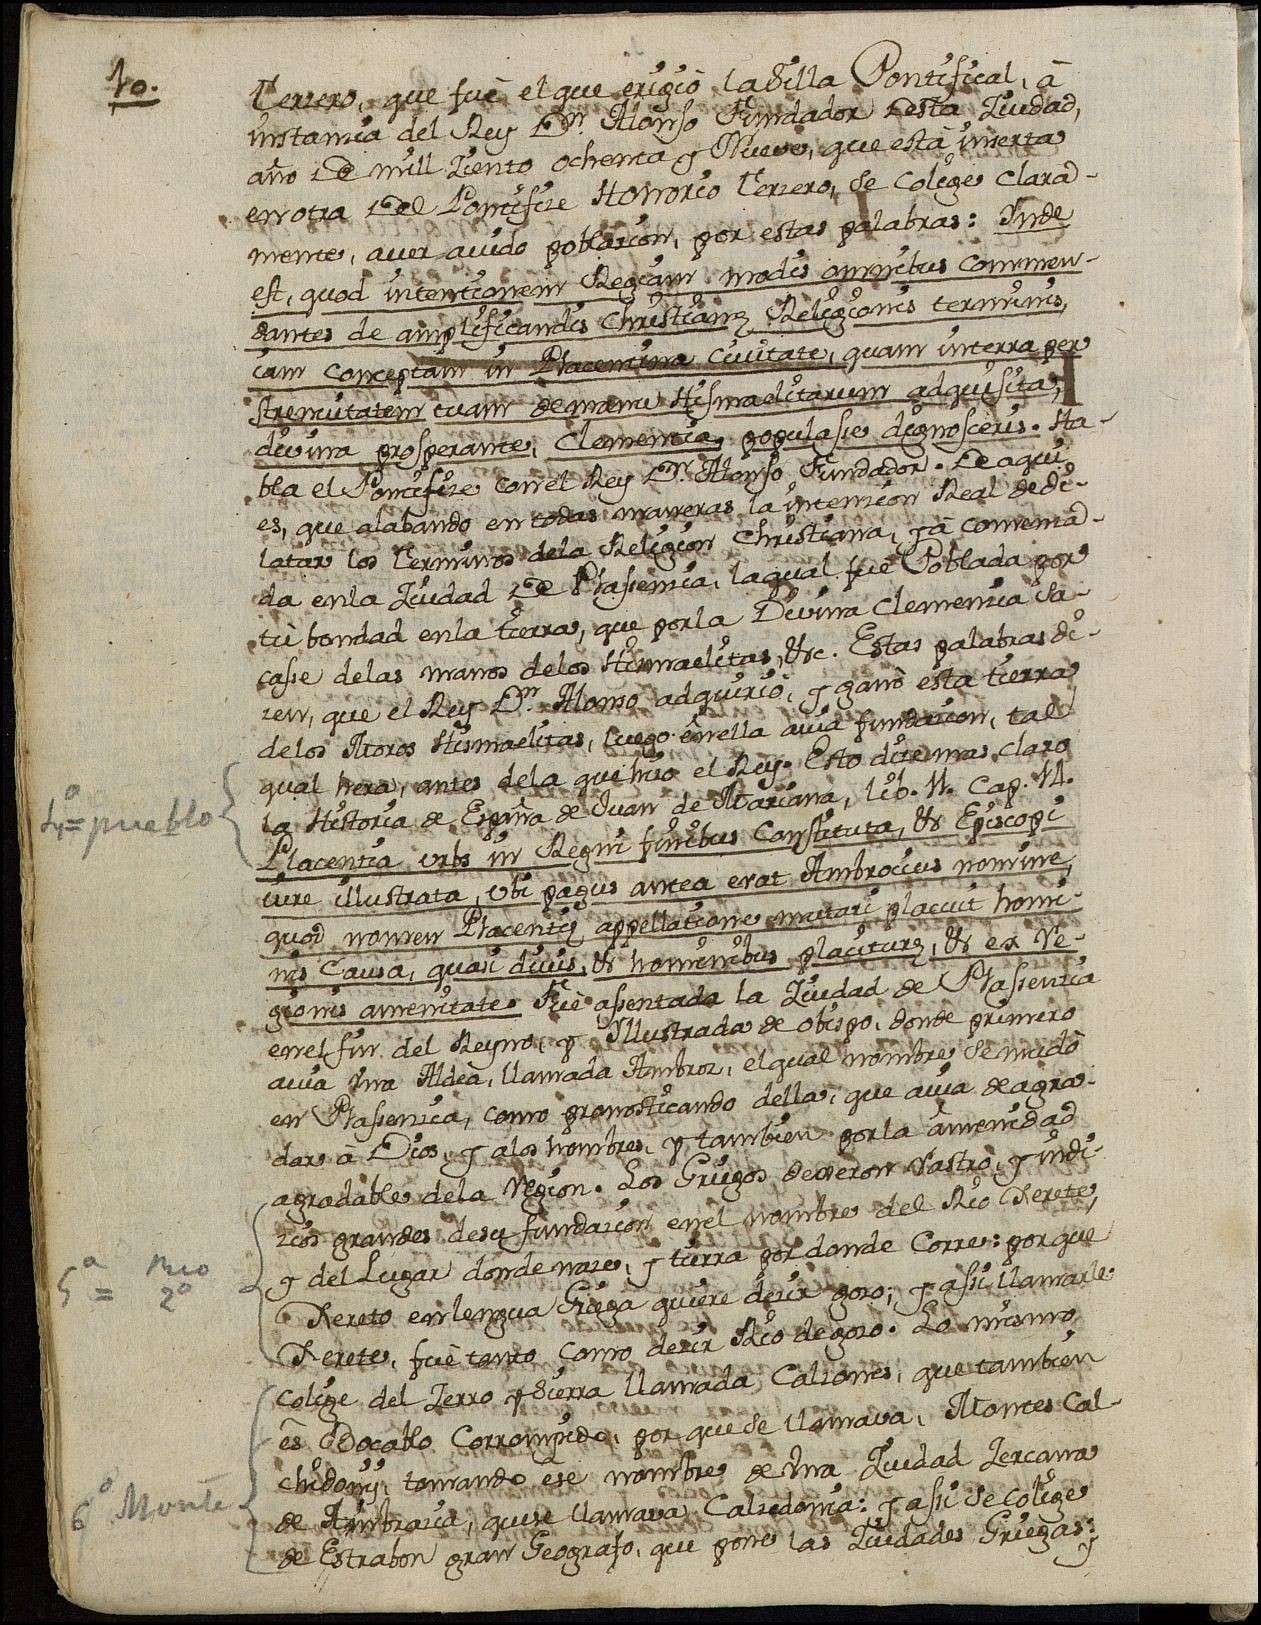 10.
Terzero, que fuè el que erigiò la Silla Pontifical, à
instancia del Rey Dn. Alonso Fundador desta Ziudad,
año de mill Ziento ochenta y Nueve, que està inserta
en otra del Pontifize Honorio Terzero, se colige clara-
mente, aver avido poblazion, por estas palabras: Inde
est, quod intentionem Regiam modis omnibus commen-
dantes de amplificandis Christianę Religionis terminis,
iam conceptam in Placentina Civitate, quam in terra per
strenuitatem tuam de manu Hismaelitarum adquisita,
divina prosperante, Clementia, populasse dignosceris. Ha-
bla el Pontifize con el Rey Dn. Alonso Fundador. De aqui
es, que alabando en todas maneras la intenzion Real de di-
latar los Terminos dela Religion Christiana, yà comenza-
da en la Ziudad de Plasenzia, la qual fuè Poblada por
tù bondad en la tierra, que por la Divina Clemenzia sa-
casse delas manos delos Hismaelitas, &c. Estas palabras di-
zen, que el Rey Dn. Alonso adquiriò, y ganò esta tierra
delos Moros Hismaelitas, luego en ella avia fundazion, tal
qual hera, antes dela que hizo el Rey. Esto dize mas claro
la Historia de España de Juan de Mariana, lib. 11. Cap. 14.
4ª= pueblo
Placentia urbs in Regni finibus Constituta, & Episcopi
iure illustrata, ubi pagus antea erat Ambrocius nomine,
quod nomen Placentię appellatione mutari placuit homi-
nis causa, quasi divis, & hominibus placiturę, & ex Re-
gionis amenitate. Fuè assentada la Ziudad de Plasenzia
en el fin del Reyno, y Yllustrada de obispo, donde primero
avia una Aldea, llamada Ambroz, el qual nombre se mudò
en Plasenzia, como pronosticando della, que avia de agra-
dar à Dios, y alos hombres, y tambien por la amenidad
agradable dela Region. Los Griegos dexeron Rastro, y indi-
zios grandes de su fundazion en el nombre del Rio Xerete,
y del Lugar donde naze, y tierra por donde Corre: porque
5ª= Rio 2º
Xereto en lengua Griega quiere dezir gozo; y assi llamarle
Xerete, fuè tanto como dezir Rio de gozo. Lo mismo
colige del Zerro y Sierra llamada Calzones, que tambien
es Bocablo Corrompido, por que se llamava, Montes Cal-
chidonij, tomando ese nombre de una Ziudad Zercana
6º Monte
de Ambrazia, que se llamava Calzedonia: y assi se colige
de Estrabon gran Geografo, que pone las Ziudades Griegas; y